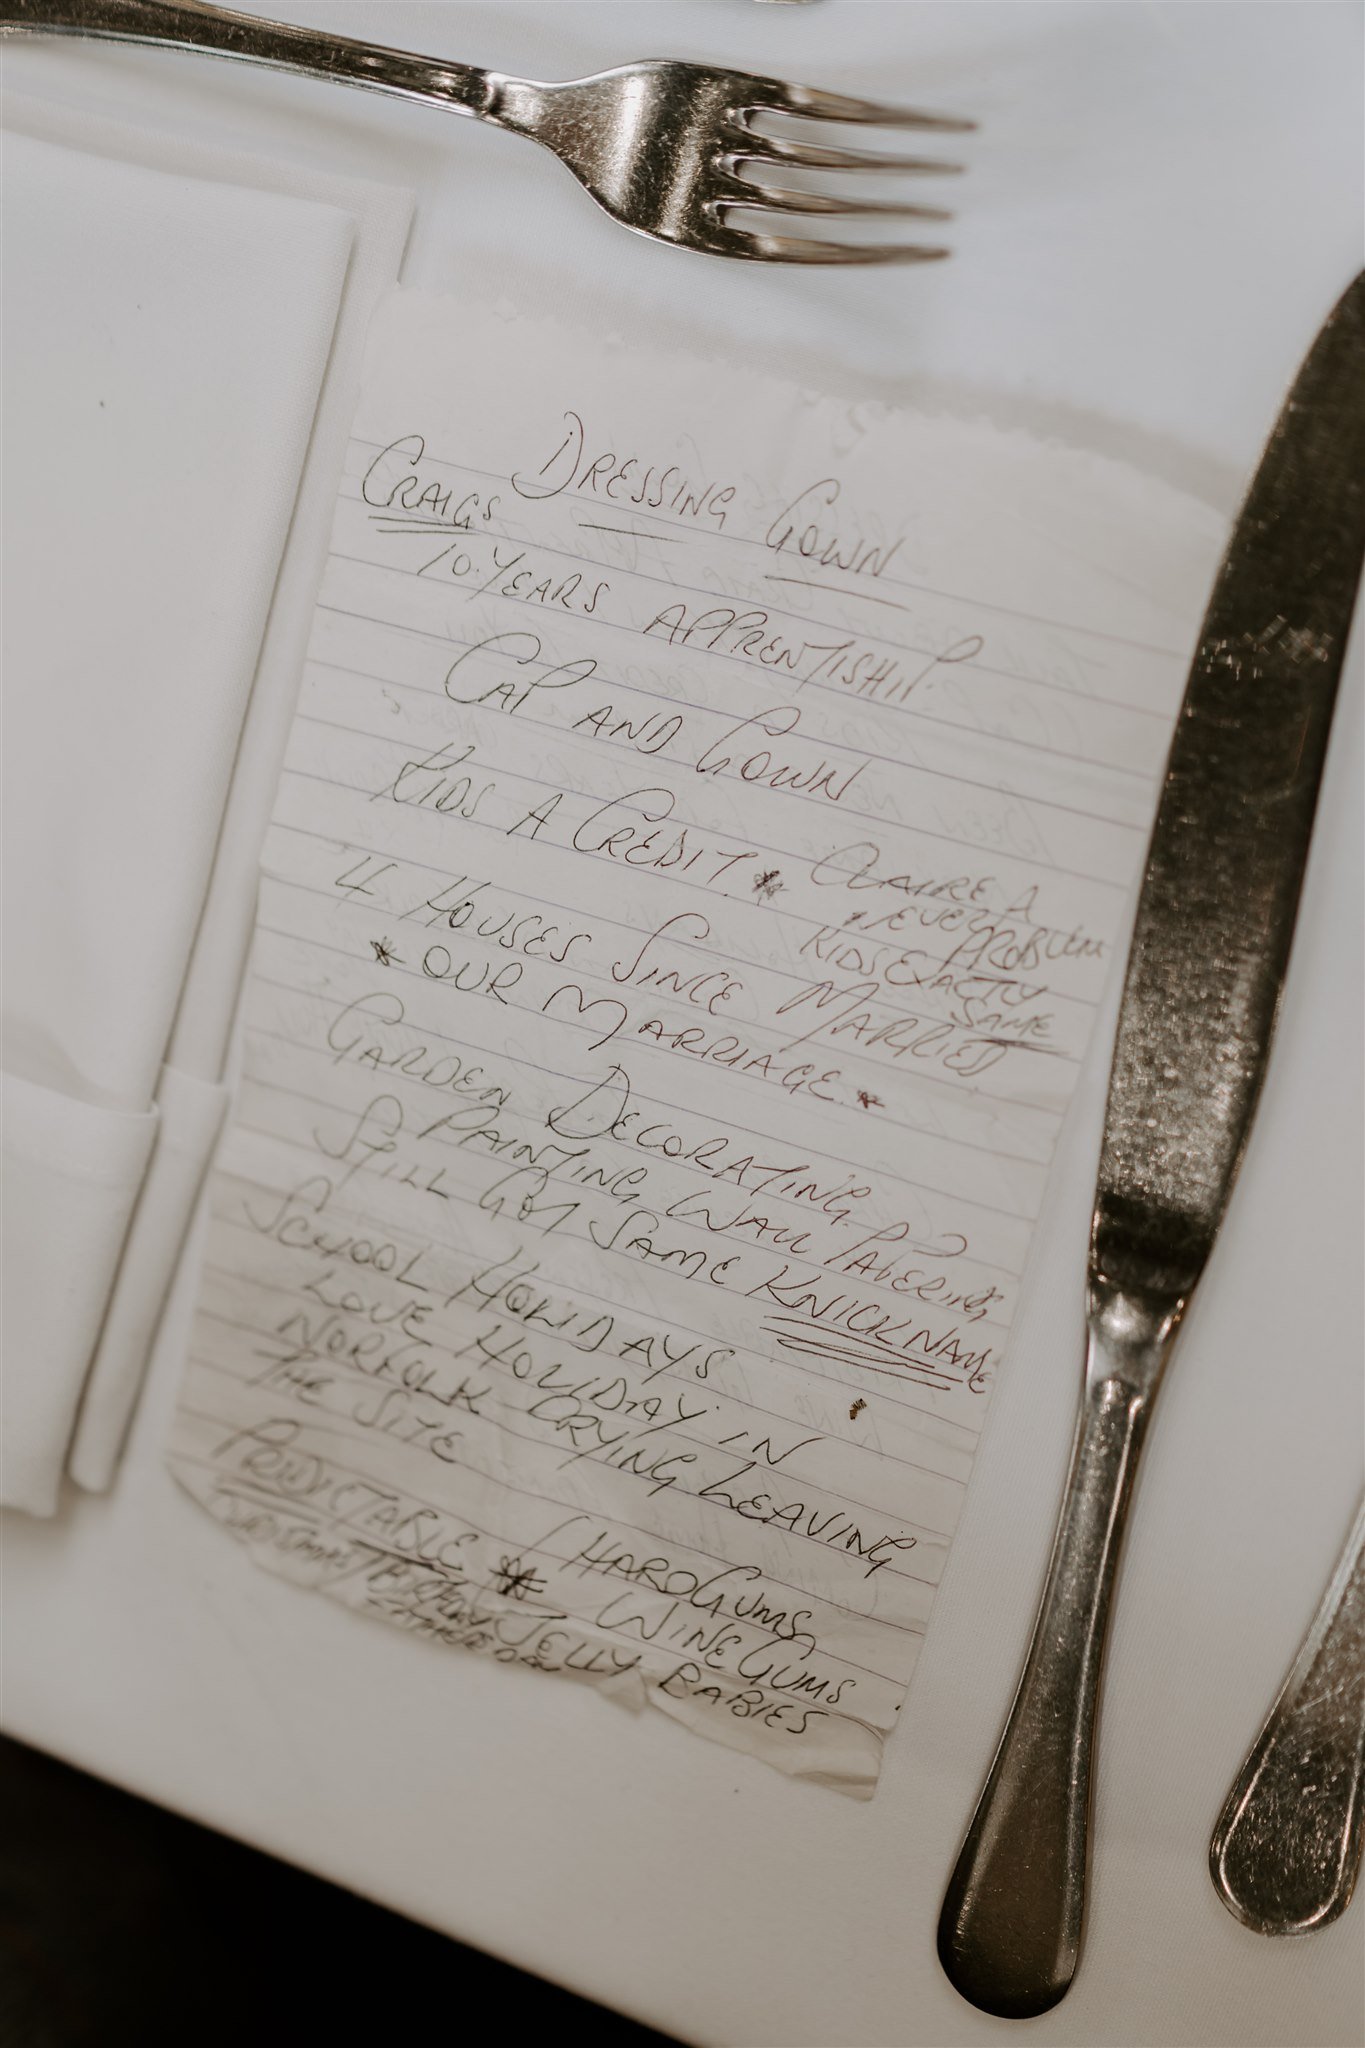 DRESSING GOWN
CRAIGS
10 YEARS APPRENTISHIP.
CAP AND GOWN
KIDS A CREDIT *
CLAIRE A
NEVER PROBLEM
KIDS EXACTLY
SAME
4 HOUSES SINCE MARRIED
* OUR MARRIAGE *
GARDEN DECORATING
PAINTING WALL PAPERING
STILL GOT SAME KNICKNAME
SCHOOL HOLIDAYS
LOVE HOLIDAY IN
NORFOLK CRYING LEAVING
THE SITE
PREDICTABLE * HARD GUMS
WINE GUMS
JELLY BABIES